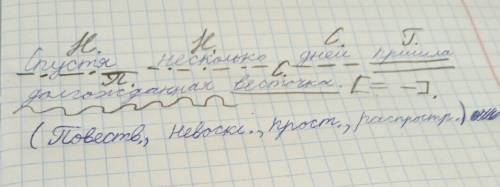 Н. Н. С. Г.
Спустя несколько дней пришла
П. С.
долгожданная весточка. [= -].
(Повеств., Невоскл., прост., распростр.)